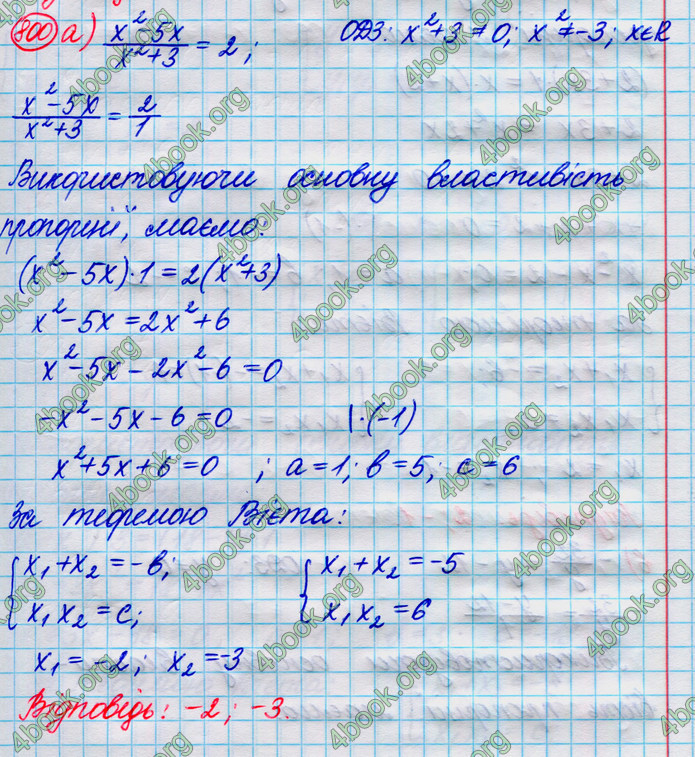 800 а) (x²-5x)/(x²+3) = 2; ОДЗ: x²+3≠0; x²≠-3; x∈R
(x²-5x)/(x²+3) = 2/1
Використовуючи основну властивість
пропорції, маємо:
(x²-5x)·1=2(x²+3)
x²-5x=2x²+6
x²-5x-2x²-6=0
-x²-5x-6=0 |·(-1)
x²+5x+6=0 ; a=1; b=5; c=6
За теоремою Вієта:
{x₁+x₂=-b; {x₁+x₂=-5
x₁x₂=c; x₁x₂=6
x₁=-2; x₂=-3
Відповідь: -2; -3.
4book.org